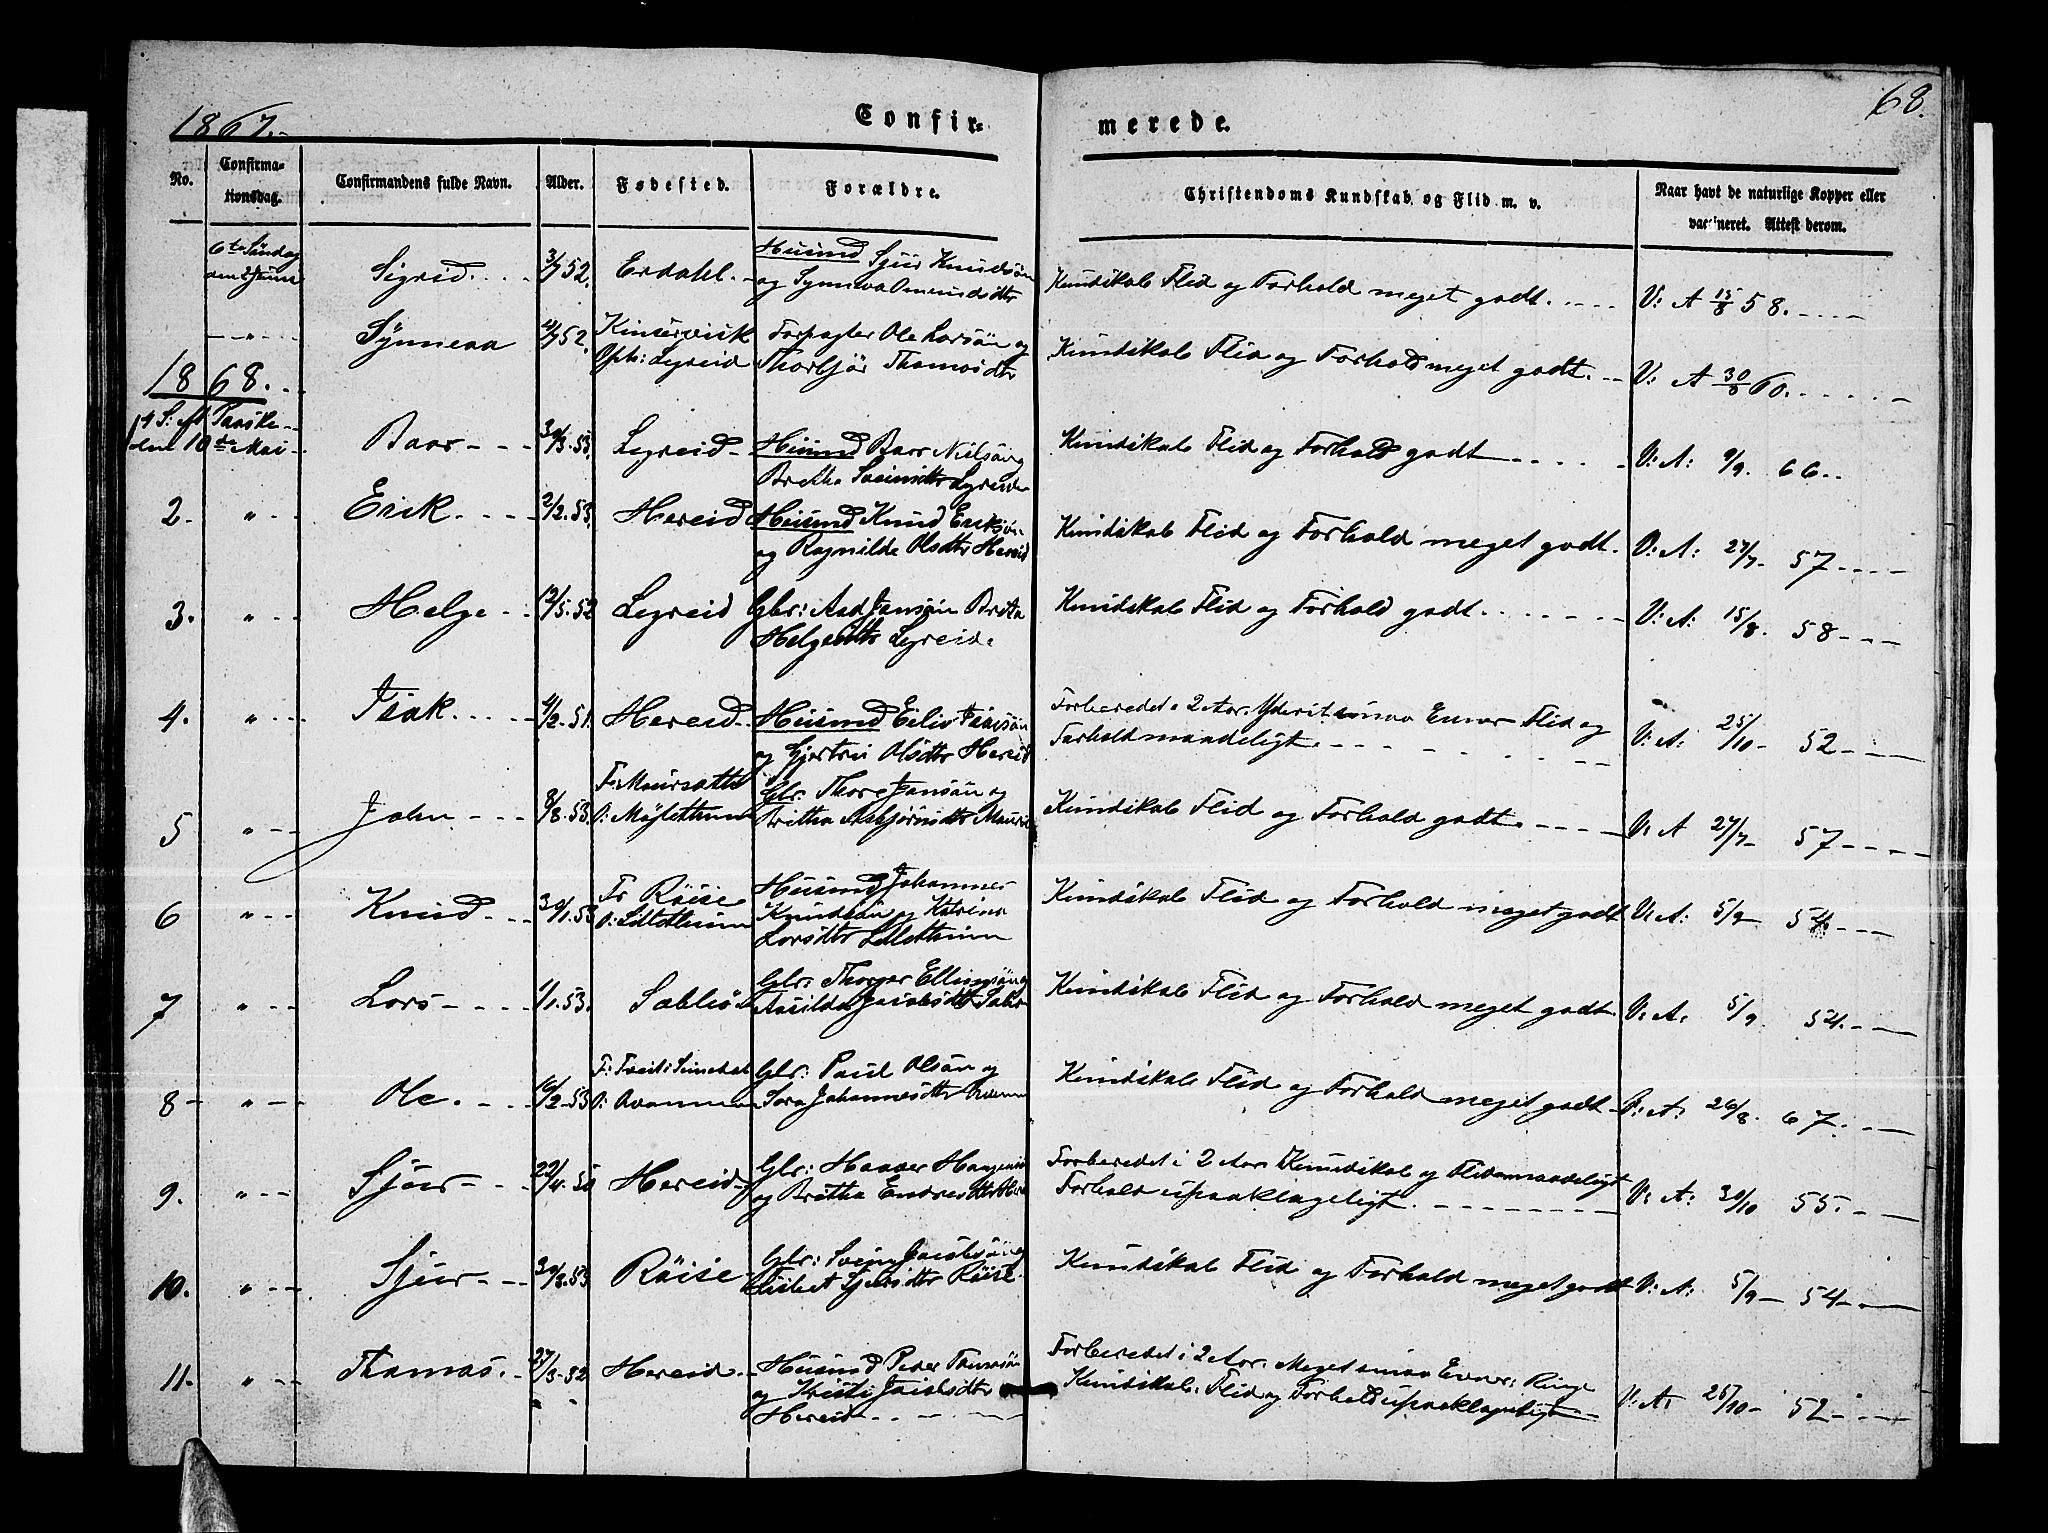 1867.-
68.
Confir-
merede.
No.
Confirma-
tionsdag.
Confirmandens fulde Navn.
Alder.
Fødested.
Forældre.
Christendoms Kundskab og Flid m. v.
Naar havt de naturlige Kopper eller
vaccineret. Attest derom.
6te Söndag den 2 Juni Sigrid 3/7 52. Erdahl Huusmd Sjur Knudsön
og Synneva Omundsdtr
Kundskab Flid og Forhold meget godt. V: A 15/8 58.
" Synneva 11/7 52. Kinservik Forpagter Ole Larsön og
Oph: Legreid Thorbjör Thomasdtr
Kundskab Flid og Forhold meget godt. V: A 30/8 60.
1868.
den 10de Mai Baar 53. Legreid Huusmd Baar Nielsön
Britha Legreid
Kundskab Flid og Forhold godt V: A: 9/9. 66.
2. " Erik 2/2. 53. Hereid Huusmd Knud Eriksön
og Ragnilde Olsdtr Hereid
Kundskab Flid og Forhold meget godt. V: A: 27/7 57
3. " Helge 12/5. 52 Legreid Gbr: Aad Jansön Brita
Helgesdtr Legreid.
Kundskab Flid og Forhold godt V: A: 15/8. 58
4. " Isak 4/2. 51. Hereid Huusmd Eiliv Isaksön
og Gjertrui Olsdtr Hereid
Forberedet i 2 Aar. Yderst smaa Evner Flid og
Forhold maadeligt V: A: 25/10 52
5 " John 8/8. 53. F: Maursætth Gbr: Thore Jansön og
O: Britha Asbjörnsdtr
Kundskab Flid og Forhold godt V: A 27/7 57
6 " Knud 30/1. 53 Fr Röise Huusmd Johannes
O: Lilletthuun Knudsön og Katrina
Larsdtr Lilletthuun
Kundskab Flid og Forhold meget godt V: A: 5/9 54
7 " Lars 1/1. 53. Sabbiö Gbr: Thorger Ellingsön og
Aasilda Jacobsdtr
Kundskab Flid og Forhold meget godt. V: A: 5/9 54.
8 " Ole 16/2 53 Gbr: Paul Olsön og
Johannesdtr
Kundskab Flid og Forhold meget godt V: A: 26/8. 67.
9. " Sjur 22/4. 50 Hereid Gbr: Haaver
og Britha Endresdtr
Forberedet i 2 Aar Kundskab og Flid maadeligt
Forhold upaaklageligt. V: A: 30/10 55.
10. " Sjur 30/3. 53 Röise Gbr: Svein Jacobsön og
Lisbet Sjursdtr Röise
Kundskab Flid og Forhold meget godt V: A: 5/9 54
11. " Thomas. 27/3. 52 Hereid Huusmd Peder
og Kristi Jacobsdtr
Hereid
Forberedet i 2 Aar. Meget smaa Evner: Ringe
Kundskab: Flid og Forhold upaaklageligt V: A: 25/10 52